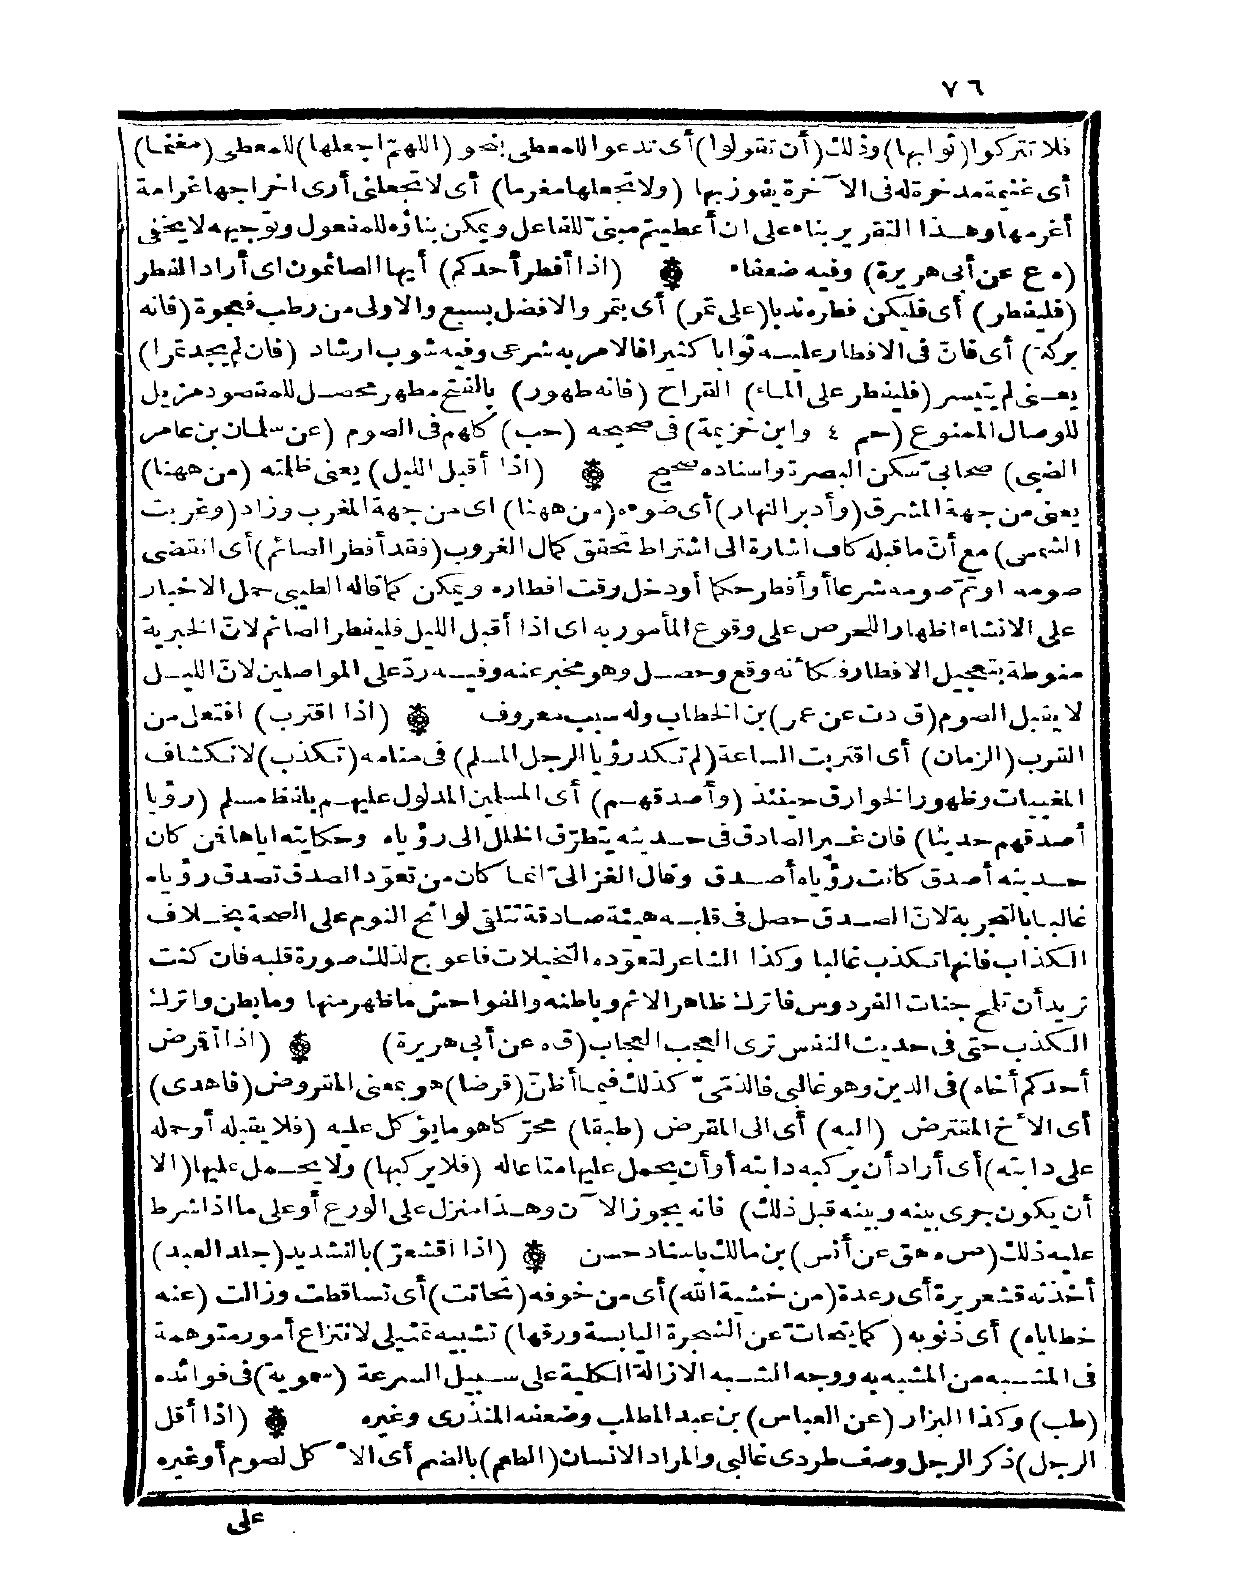 ٧٦
فلا تتركوا (ثوابها) وذلك (أن تقولوا) أى تدعوا للمعطى بنحو (اللهمّ اجعلها) للمعطى (مغنما)
أى غنيمة مدخرة له فى الآخرة يفوز بها (ولا تجعلها مغرما) أى لا تجعلنى أرى اخراجها غرامة
أغرمها وهذا التقرير بناء على ان أعطيتم مبنىّ للفاعل ويمكن بناؤه للمفعول وتوجيهه لا يخفى
(ه ع عن أبى هريرة) وفيه ضعفاء ۞ (اذا أفطر أحدكم) أيها الصائمون اى أراد الفطر
(فليفطر) أى فليكن فطره ندبا (على تمر) أى بتمر والافضل بسبع والاولى من رطب فعجوة (فانه
بركة) أى فانّ فى الافطار عليه ثوابا كثيرا فالامر به شرعى وفيه شوب ارشاد (فان لم يجد تمرا)
يعنى لم يتيسر (فليفطر على الماء) القراح (فانه طهور) بالفتح مطهر محصل للمقصود مزيل
للوصال الممنوع (حم ٤ وابن خزيمة) فى صحيحه (حب) كلهم فى الصوم (عن سلمان بن عامر
الضبى) صحابىّ سكن البصرة واسناده صحيح ۞ (اذا أقبل الليل) يعنى ظلمته (من ههنا)
يعنى من جهة المشرق (وأدبر النهار) أى ضوءه (من ههنا) اى من جهة المغرب وزاد (وغربت
الشمس) مع أنّ ما قبله كاف اشارة الى اشتراط تحقق كمال الغروب (فقد أفطر الصائم) أى انقضى
صومه او تمّ صومه شرعا أو أفطر حكما أو دخل وقت افطاره ويمكن كما قاله الطيبى حمل الاخبار
على الانشاء اظهارا للحرص على وقوع المأمور به اى اذا أقبل الليل فليفطر الصائم لانّ الخيرية
منوطة بتعجيل الافطار فكأنه وقع وحصل وهو مخبر عنه وفيه ردّ على المواصلين لانّ الليل
لا يقبل الصوم (ق د ت عن عمر) بن الخطاب وله سبب معروف ۞ (اذا اقترب) افتعل من
القرب (الزمان) أى اقتربت الساعة (لم تكد رؤيا الرجل المسلم) فى منامه (تكذب) لانكشاف
المغيبات وظهور الخوارق حينئذ (وأصدقهم) أى المسلمين المدلول عليهم بلفظ مسلم (رؤيا
أصدقهم حديثا) فان غير الصادق فى حديثه يتطرّق الخلل الى رؤياه وحكايته اياها فمن كان
حديثه أصدق كانت رؤياه أصدق وقال الغزالىّ انما كان من تعوّد الصدق تصدق رؤياه
غالبا بالتجربة لانّ الصدق حصل فى قلبه هيئة صادقة تتلقى لوائح النوم على الصحة بخلاف
الكذاب فانها تكذب غالبا وكذا الشاعر لتعوّده التخيلات فاعوج لذلك صورة قلبه فان كنت
تريد أن تلمح جنات الفردوس فاترك ظاهر الاثم وباطنه والفواحش ما ظهر منها وما بطن واترك
الكذب حتى فى حديث النفس ترى العجب العجاب (ق ه عن أبى هريرة) ۞ (اذا أقرض
أحدكم أخاه) فى الدين وهو غالبى فالذمىّ كذلك فيما أظنّ (قرضا) هو بمعنى المقروض (فاهدى)
أى الأخ المقترض (اليه) أى الى المقرض (طبقا) محرّكا هو ما يؤكل عليه (فلا يقبله أو حمله
على دابته) أى أراد أن يركبه دابته أو أن يحمل عليها متاعا له (فلا يركبها) ولا يحمل عليها (الا
أن يكون جرى بينه وبينه قبل ذلك) فانه يجوز الآن وهذا منزل على الورع أو على ما اذا شرط
عليه ذلك (ص ه هق عن أنس) بن مالك باسناد حسن ۞ (اذا اقشعرّ) بالتشديد (جلد العبد)
أخذته قشعريرة أى رعدة (من خشية الله) أى من خوفه (تحاتت) أى تساقطت وزالت (عنه
خطاياه) أى ذنوبه (كما يتحات عن الشجرة اليابسة ورقها) تشبيه تمثيلى لانتزاع أمور متوهمة
فى المشبه من المشبه به ووجه الشبه الازالة الكلية على سبيل السرعة (سمويه) فى فوائده
(طب) وكذا البزار (عن العباس) بن عبد المطلب وضعفه المنذرى وغيره ۞ (اذا أقل
الرجل) ذكر الرجل وصف طردى غالبى والمراد الانسان (الطعم) بالضم أى الأكل لصوم أو غيره
على